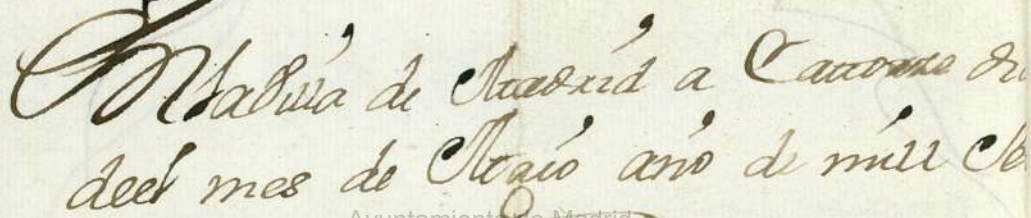 En la Villa de Madrid a Catorze di
deel mes de Maio año de mill Se
Ayuntamiento de Madrid